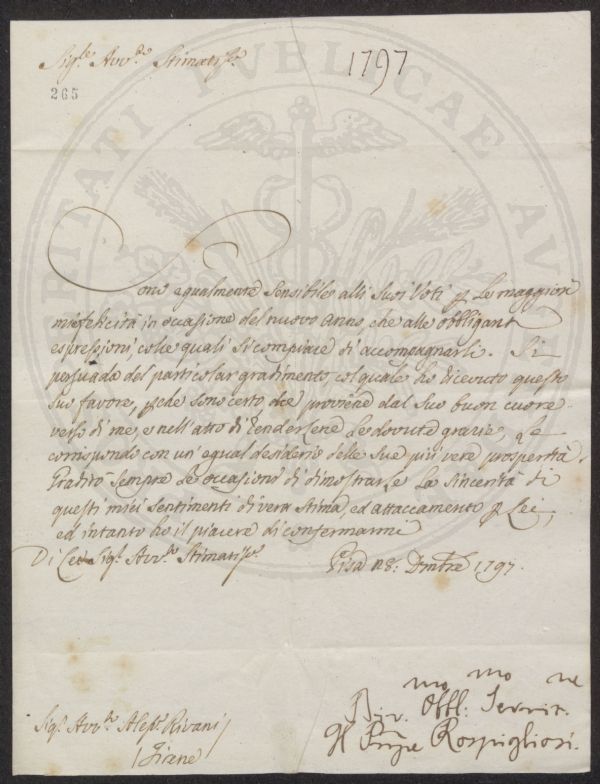 Sig.re Avv.to Stimatis.mo
1797
265
Sono egualmente sensibile alli suoi Voti p le maggiori
mie felicità in occasione del nuovo Anno, che alle obbliganti
espressioni, colle quali si compiace di accompagnarli. Si
persuada del particolar gradimento, col quale ho ricevuto questo
suo favore, pche sono certo che proviene dal suo buon cuore
verso di me, e nell'atto di rendergliene le dovute grazie, Le
corrispondo con un egual desiderio delle sue più vere prosperità.
Gradirò sempre le occasioni di dimostrarle la sincerità di
questi miei sentimenti di vera stima, ed attaccamento p Lei,
ed intanto ho il piacere di confermarmi
Di Lei Sig.re Avv.to Stimatis.mo
Pisa 28: Dmbre 1797.
Div.mo Obbl.mo Servit.re
Il Prñpe Rospigliosi.
Sig.re Avv.to Alesso Rivani
Firenze
VERITATI PVBLICAE